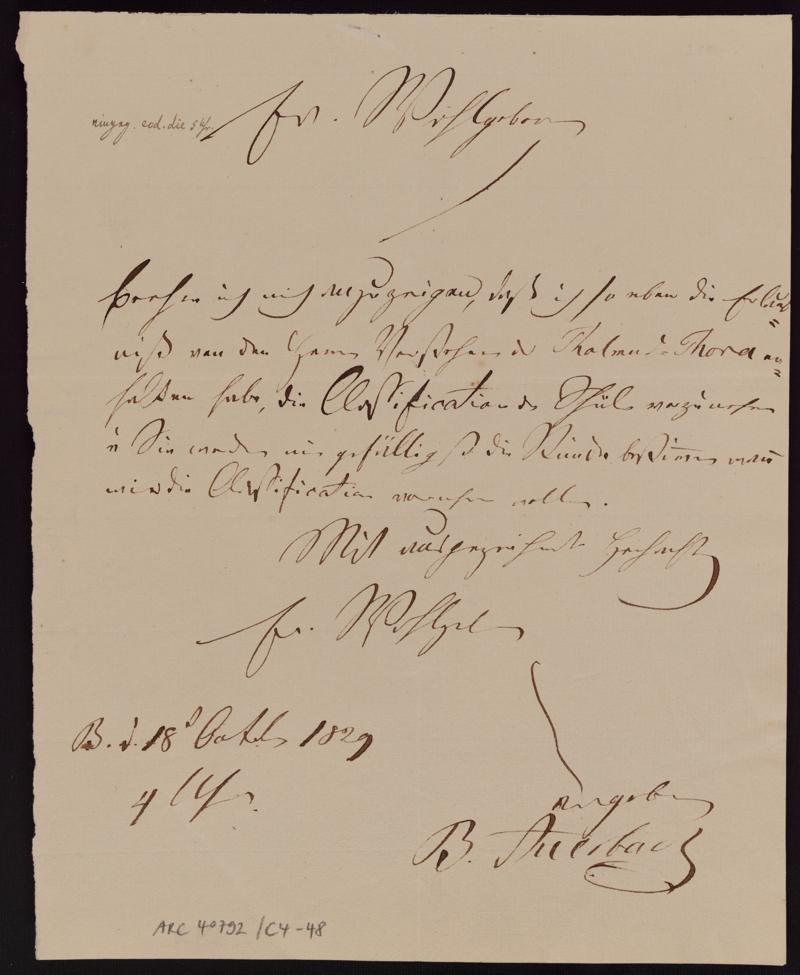 eingeg. eod. die 5 Uhr
Ew. Wohlgeboren
beehre ich mich anzuzeigen, daß ich so eben die Erlaub=
niß von den Herrn Vorstehern der Thalmud-Thora er=
halten habe, die Classification der Schüler vorzunehmen
u Sie werden mir gefälligst die Stunde bestimen wan
wir die Classification vornehmen wollen.
Mit ausgezeichneter Hochacht
Ew. Wohlgeb
B. d. 18t Octobr 1829
4 Uhr.
ergebner
B. Auerbach
ARC 40792 /C4-48